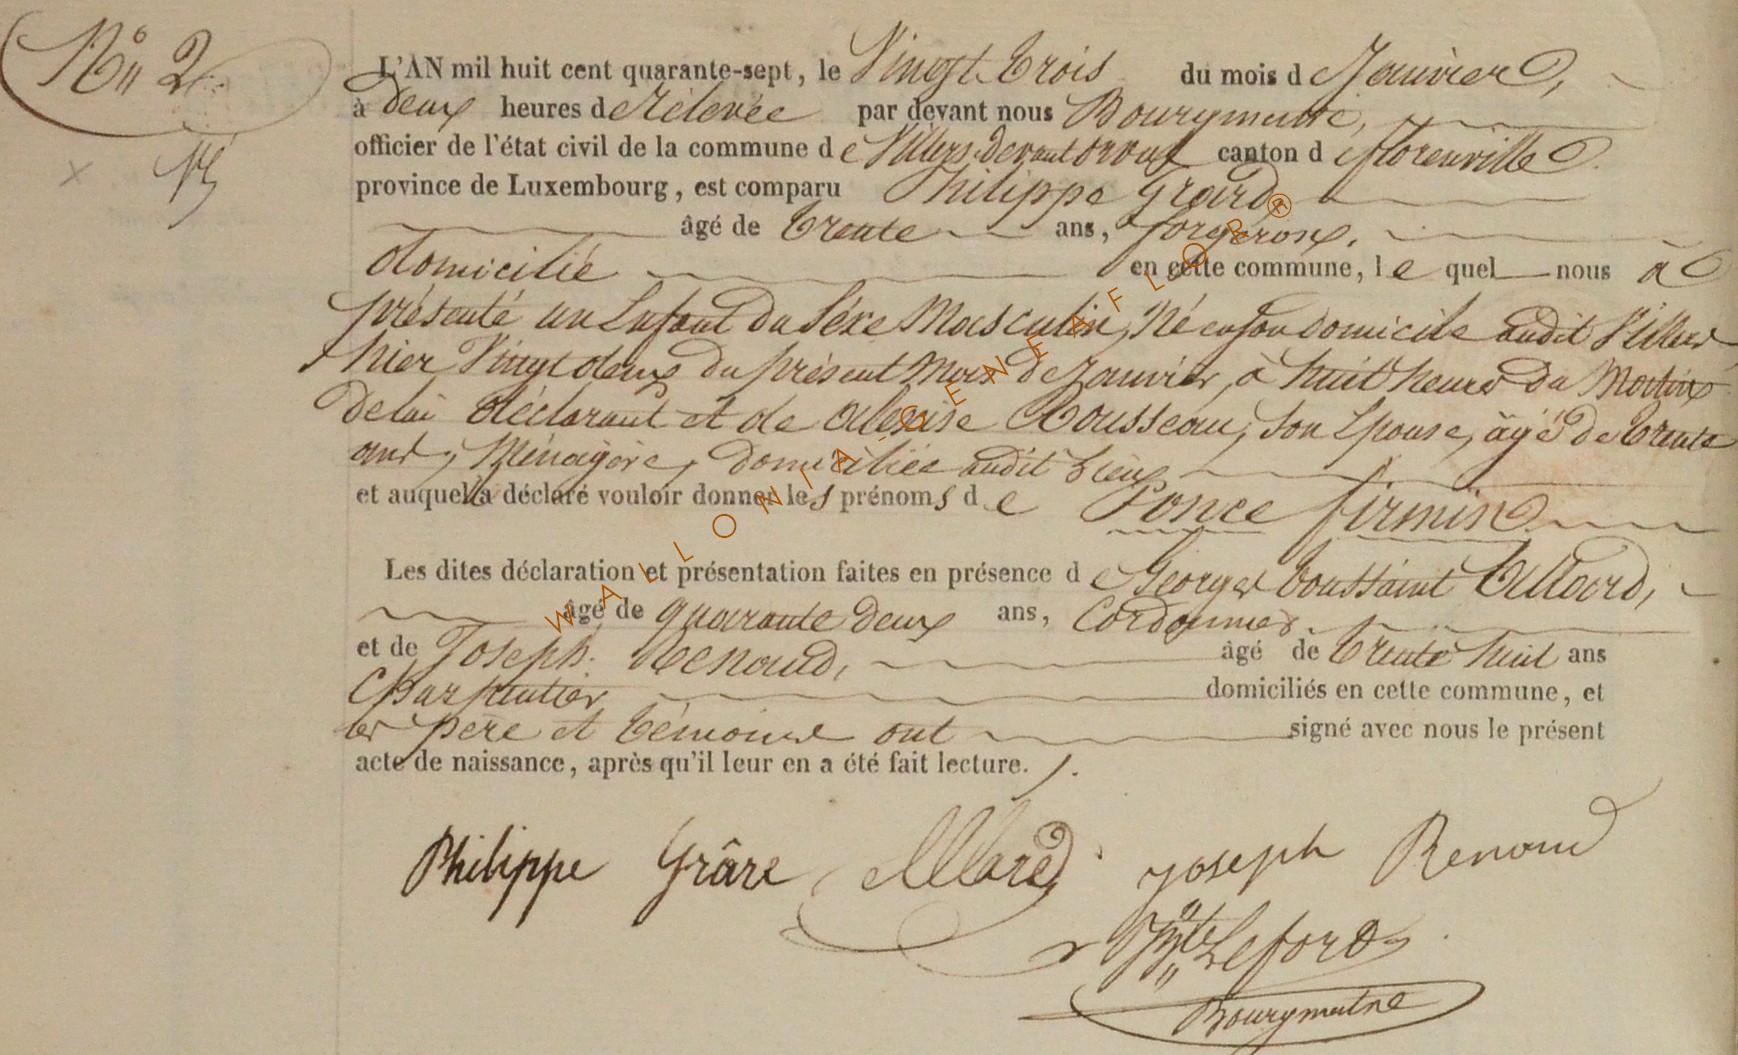 No 2
L'AN mil huit cent quarante-sept, le Vingt Trois du mois de Janvier,
à deux heures de Rélevée par devant nous Bourgmestre,
officier de l'état civil de la commune de Villers-devant orval canton de florenville
province de Luxembourg, est comparu Philippe Grard
âgé de trente ans, forgeron,
domicilié en cette commune, le quel nous a
présenté un Enfant du Séxe Masculin, Né en son domicile audit Villers
hier Vingt deux du présent Mois de Janvier, à huit heures du Matin
de lui déclarant et de Alexise Rousseau, son Epouse, âgé de trente
ans, Ménagère, domiciliée audit Lieu,
et auquel a déclaré vouloir donner les prénoms de Ponce firmin
Les dites déclaration et présentation faites en présence de Georges toussaint Allard,
âgé de quarante deux ans, Cordonnier
et de Joseph Renaud, âgé de trente huit ans
Charpentier domiciliés en cette commune, et
les père et témoins ont signé avec nous le présent
acte de naissance, après qu'il leur en a été fait lecture.
Philippe Grâre Allard Joseph Renaud
Bourgmestre
WALLONIA-GENEAFLOR®